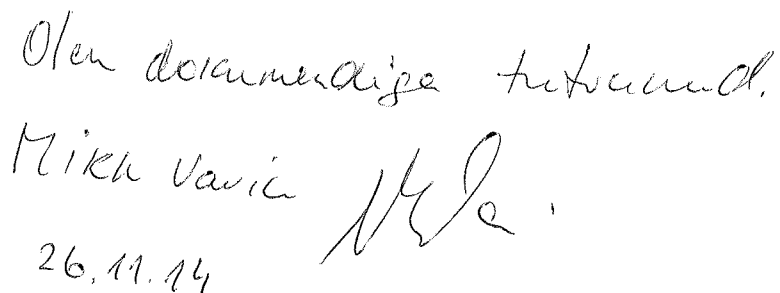 Olen dokumendiga tutvunud.
Mikk Vavin
26.11.14